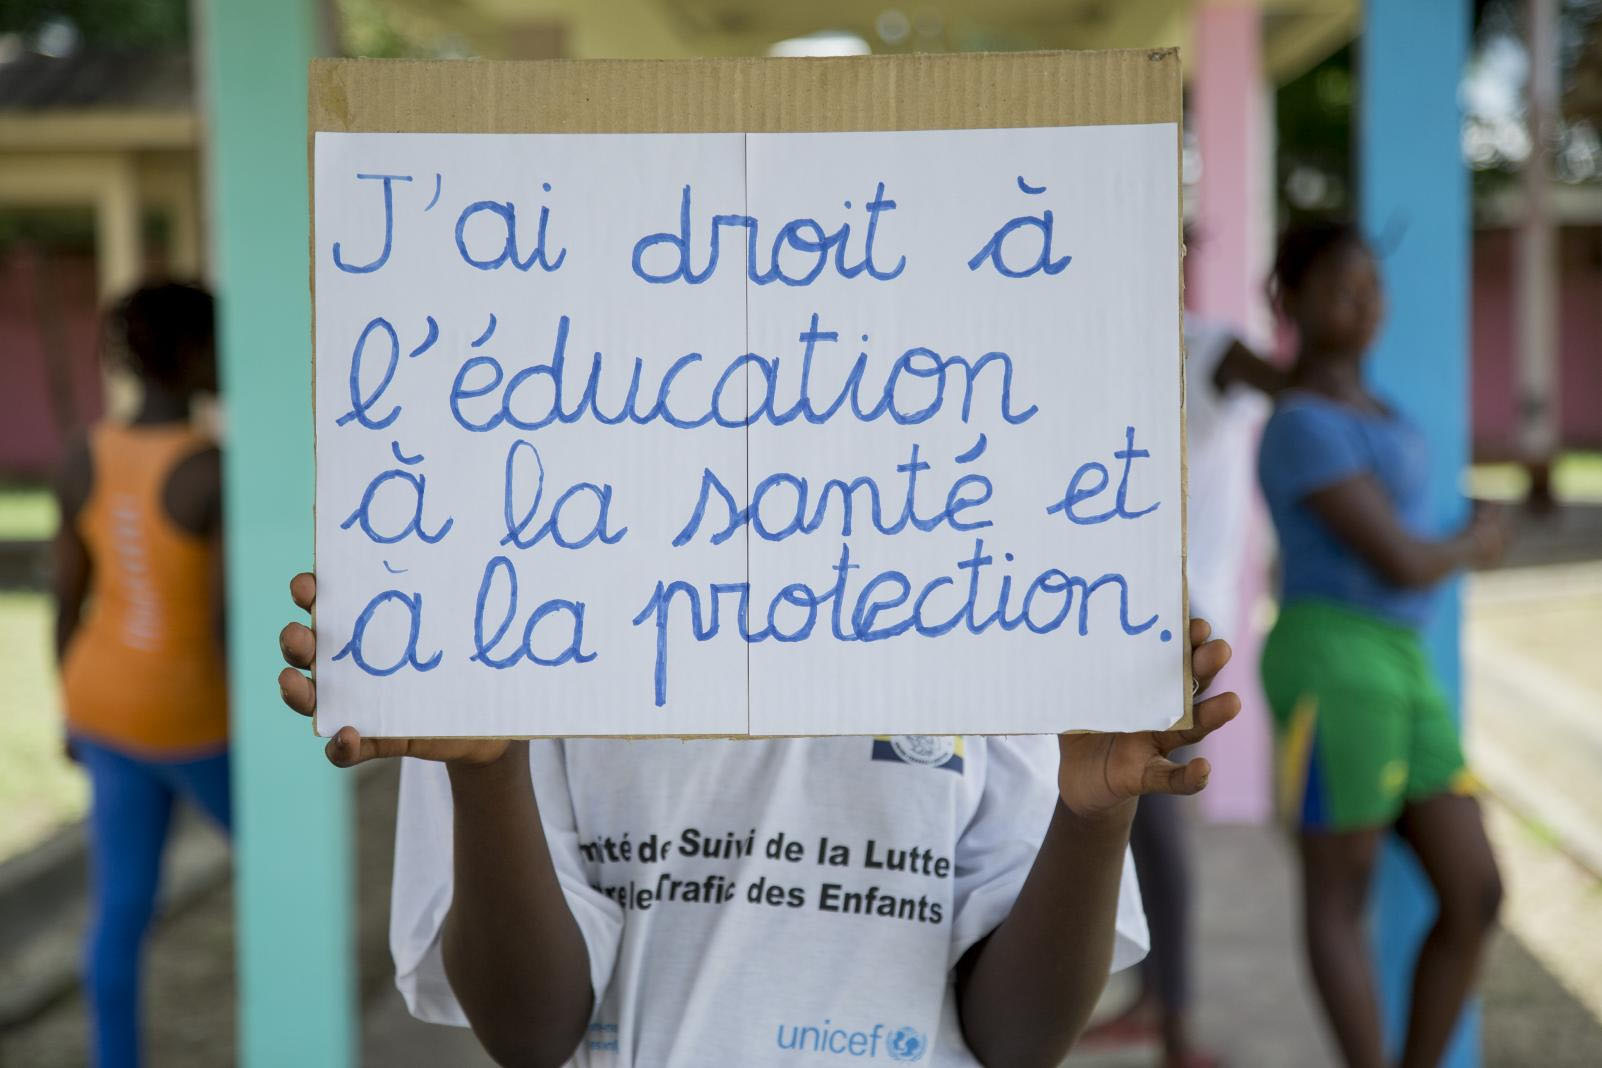 J'ai droit à
l'éducation
à la santé et
à la protection.
de Suivi de la Lutte
le Trafic des Enfants
unicef